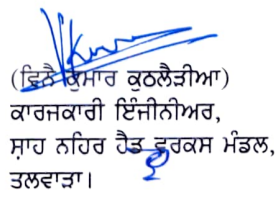 (ਵਿਨੈ ਕੁਮਾਰ ਕੁਠਲੈੜੀਆ)
ਕਾਰਜਕਾਰੀ ਇੰਜੀਨੀਅਰ,
ਸ਼ਾਹ ਨਹਿਰ ਹੈਡ ਵਰਕਸ ਮੰਡਲ,
ਤਲਵਾੜਾ।